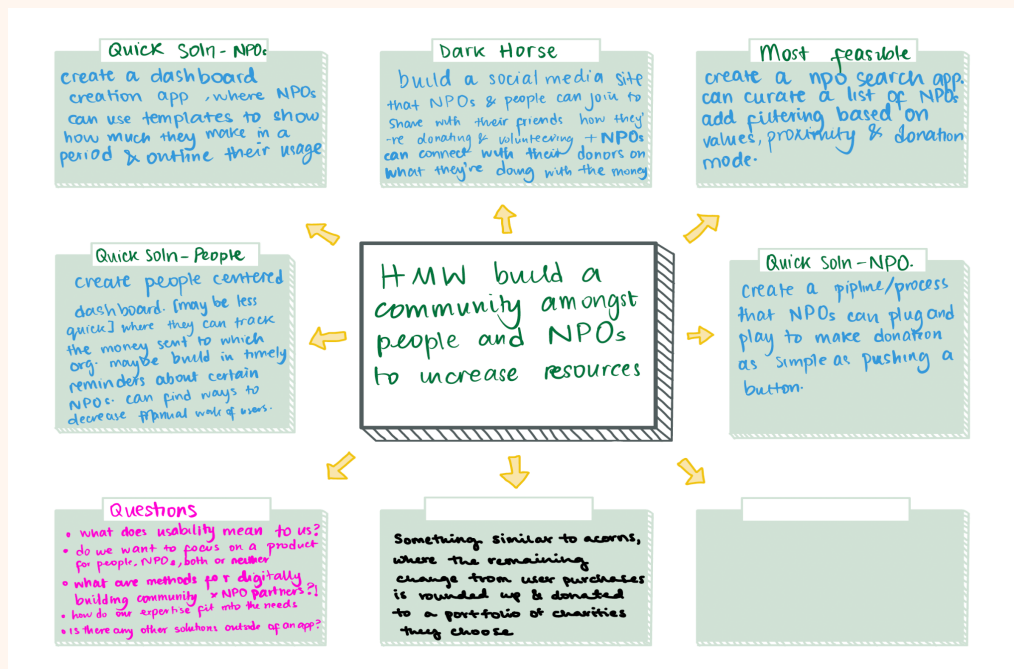 Quick Soln-NPOs
create a dashboard
creation app, where NPOs
can use templates to show
how much they make in a
period & outline their usage
Dark Horse
build a social media site
that NPOs & people can join to
share with their friends how they'
-re donating & volunteering + NPOs
can connect with their donors on
what they're doing with the money
Most feasible
create a npo search app.
can curate a list of NPOs
add filtering based on
values, proximity & donation
mode.
Quick Soln-People
create people centered
dashboard. [may be less
quick] where they can track
the money sent to which
org. maybe build in timely
reminders about certain
NPOs. can find ways to
decrease manual work of users.
HMW build a
community amongst
people and NPOs
to increase resources
Quick Soln-NPO.
create a pipline/process
that NPOs can plug and
play to make donation
as simple as pushing a
button.
Questions
• what does usability mean to us?
• do we want to focus on a product
for people, NPOs, both or neither
• what are methods for digitally
building community & NPO partners?!
• how do our expertise fit into the needs
• is there any other solutions outside of an app?
Something similar to acorns,
where the remaining
change from user purchases
is rounded up & donated
to a portfolio of charities
they choose